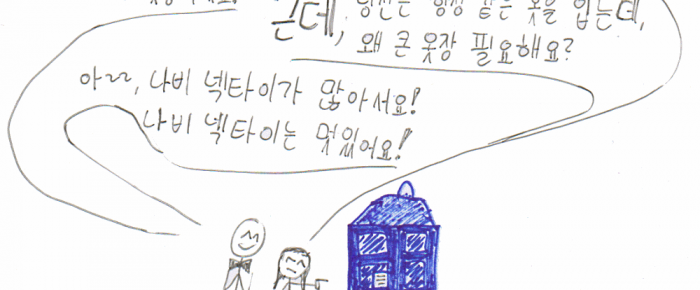 근데, 당신은 항상 같은 옷을 입는데,
왜 큰 옷장 필요해요?
아~~, 나비 넥타이가 많아서요!
나비 넥타이는 멋있어요!